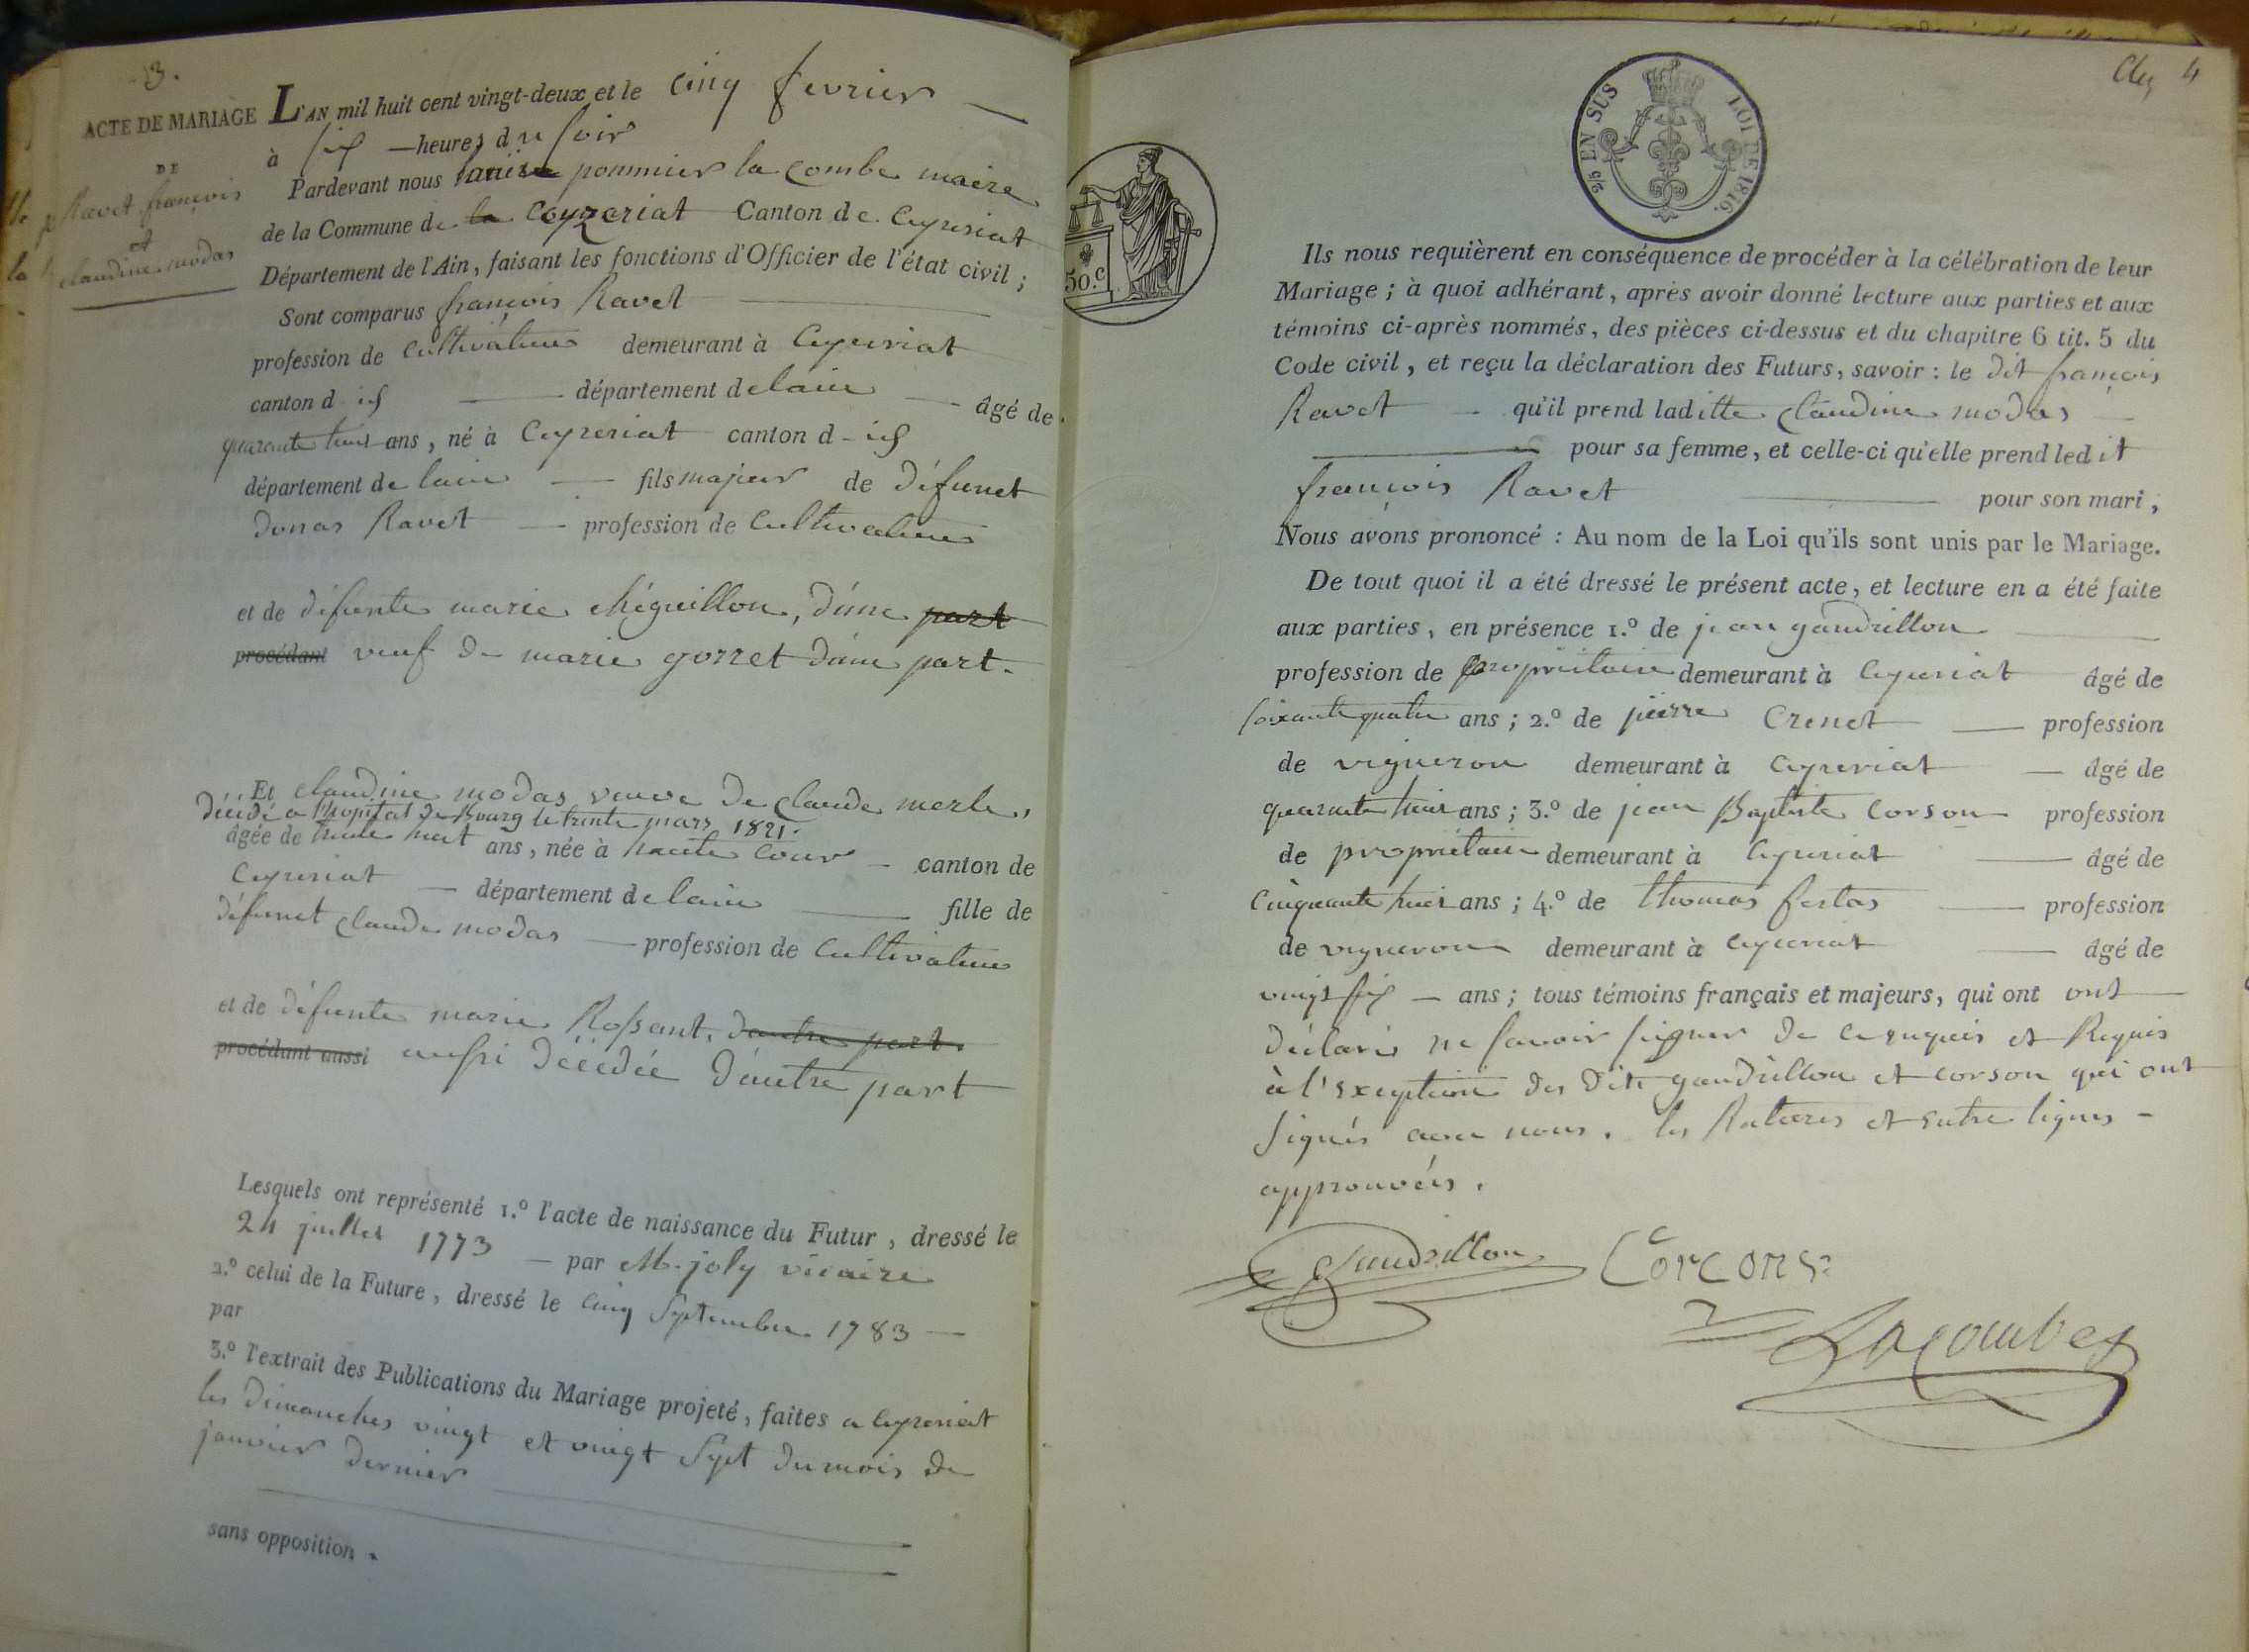 3.
ACTE DE MARIAGE
DE
Ravet françois
et
claudine modas
L'AN mil huit cent vingt-deux et le cinq fevrier
à six heures du soir
Pardevant nous pommier la combe maire
de la Commune de la Ceyzeriat Canton de Ceyzeriat
Département de l'Ain, faisant les fonctions d'Officier de l'état civil ;
Sont comparus françois Ravet
profession de Cultivateur demeurant à Ceyzeriat
canton d ici département de lain âgé de
quarante huit ans, né à Ceyzeriat canton d ici
département de lain fils majeur de défunct
donas Ravet profession de Cultivateur
et de défunte marie chéguillon, d'une part
procédant veuf de marie gorret d'une part.
Et claudine modas veuve de claude merle,
décédé a l'hopital de Bourg le trente mars 1821.
âgée de trente huit ans, née à haute cour canton de
Ceyzeriat département de lain fille de
défunct claude modas profession de Cultivateur
et de défunte marie Rossant, d'autre part.
procédant aussi aussi décédée d'autre part
Lesquels ont représenté 1.º l'acte de naissance du Futur, dressé le
24 juillet 1773 par M. joly vicaire
2.º celui de la Future, dressé le cinq Septembre 1783
par
3.º l'extrait des Publications du Mariage projeté, faites a Ceyzeriat
les dimanches vingt et vingt Sept du mois de
janvier dernier
sans opposition.
4
2/5 EN SUS LOI DE 1816.
50.c
Ils nous requièrent en conséquence de procéder à la célébration de leur
Mariage ; à quoi adhérant, après avoir donné lecture aux parties et aux
témoins ci-après nommés, des pièces ci-dessus et du chapitre 6 tit. 5 du
Code civil, et reçu la déclaration des Futurs, savoir : le dit françois
Ravet qu'il prend laditte claudine modas
pour sa femme, et celle-ci qu'elle prend ledit
françois Ravet pour son mari,
Nous avons prononcé : Au nom de la Loi qu'ils sont unis par le Mariage.
De tout quoi il a été dressé le présent acte, et lecture en a été faite
aux parties, en présence 1.º de jean gaudrillon
profession de propriétaire demeurant à Ceyzeriat âgé de
soixante quatre ans ; 2.º de pierre Crenet profession
de vigneron demeurant à Ceyzeriat âgé de
quarante huit ans ; 3.º de jean Baptiste Corson profession
de propriétaire demeurant à Ceyzeriat âgé de
cinquante huit ans ; 4.º de thomas fertas profession
de vigneron demeurant à Ceyzeriat âgé de
vingt six ans ; tous témoins français et majeurs, qui ont ont
déclaré ne savoir signer de ce enquis et Requis
à l'exeption des dits gaudrillon et corson qui ont
signés avec nous. les Ratures et entre lignes
approuvées.
Gaudrillon Corcons
Lacombe